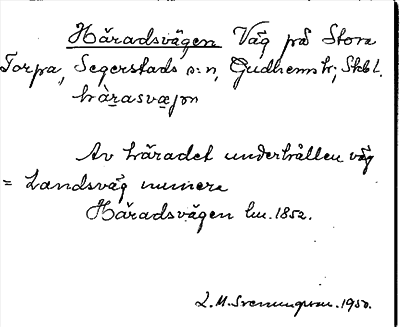 Häradsvägen Väg på Stora
Torpa, Segerstads s:n, Gudhems h; Skbl.
hä̀rasvæjən
Av häradet underhållen väg
= Landsväg numera
Häradsvägen lm. 1852.
L. M. Svenungsson. 1950.